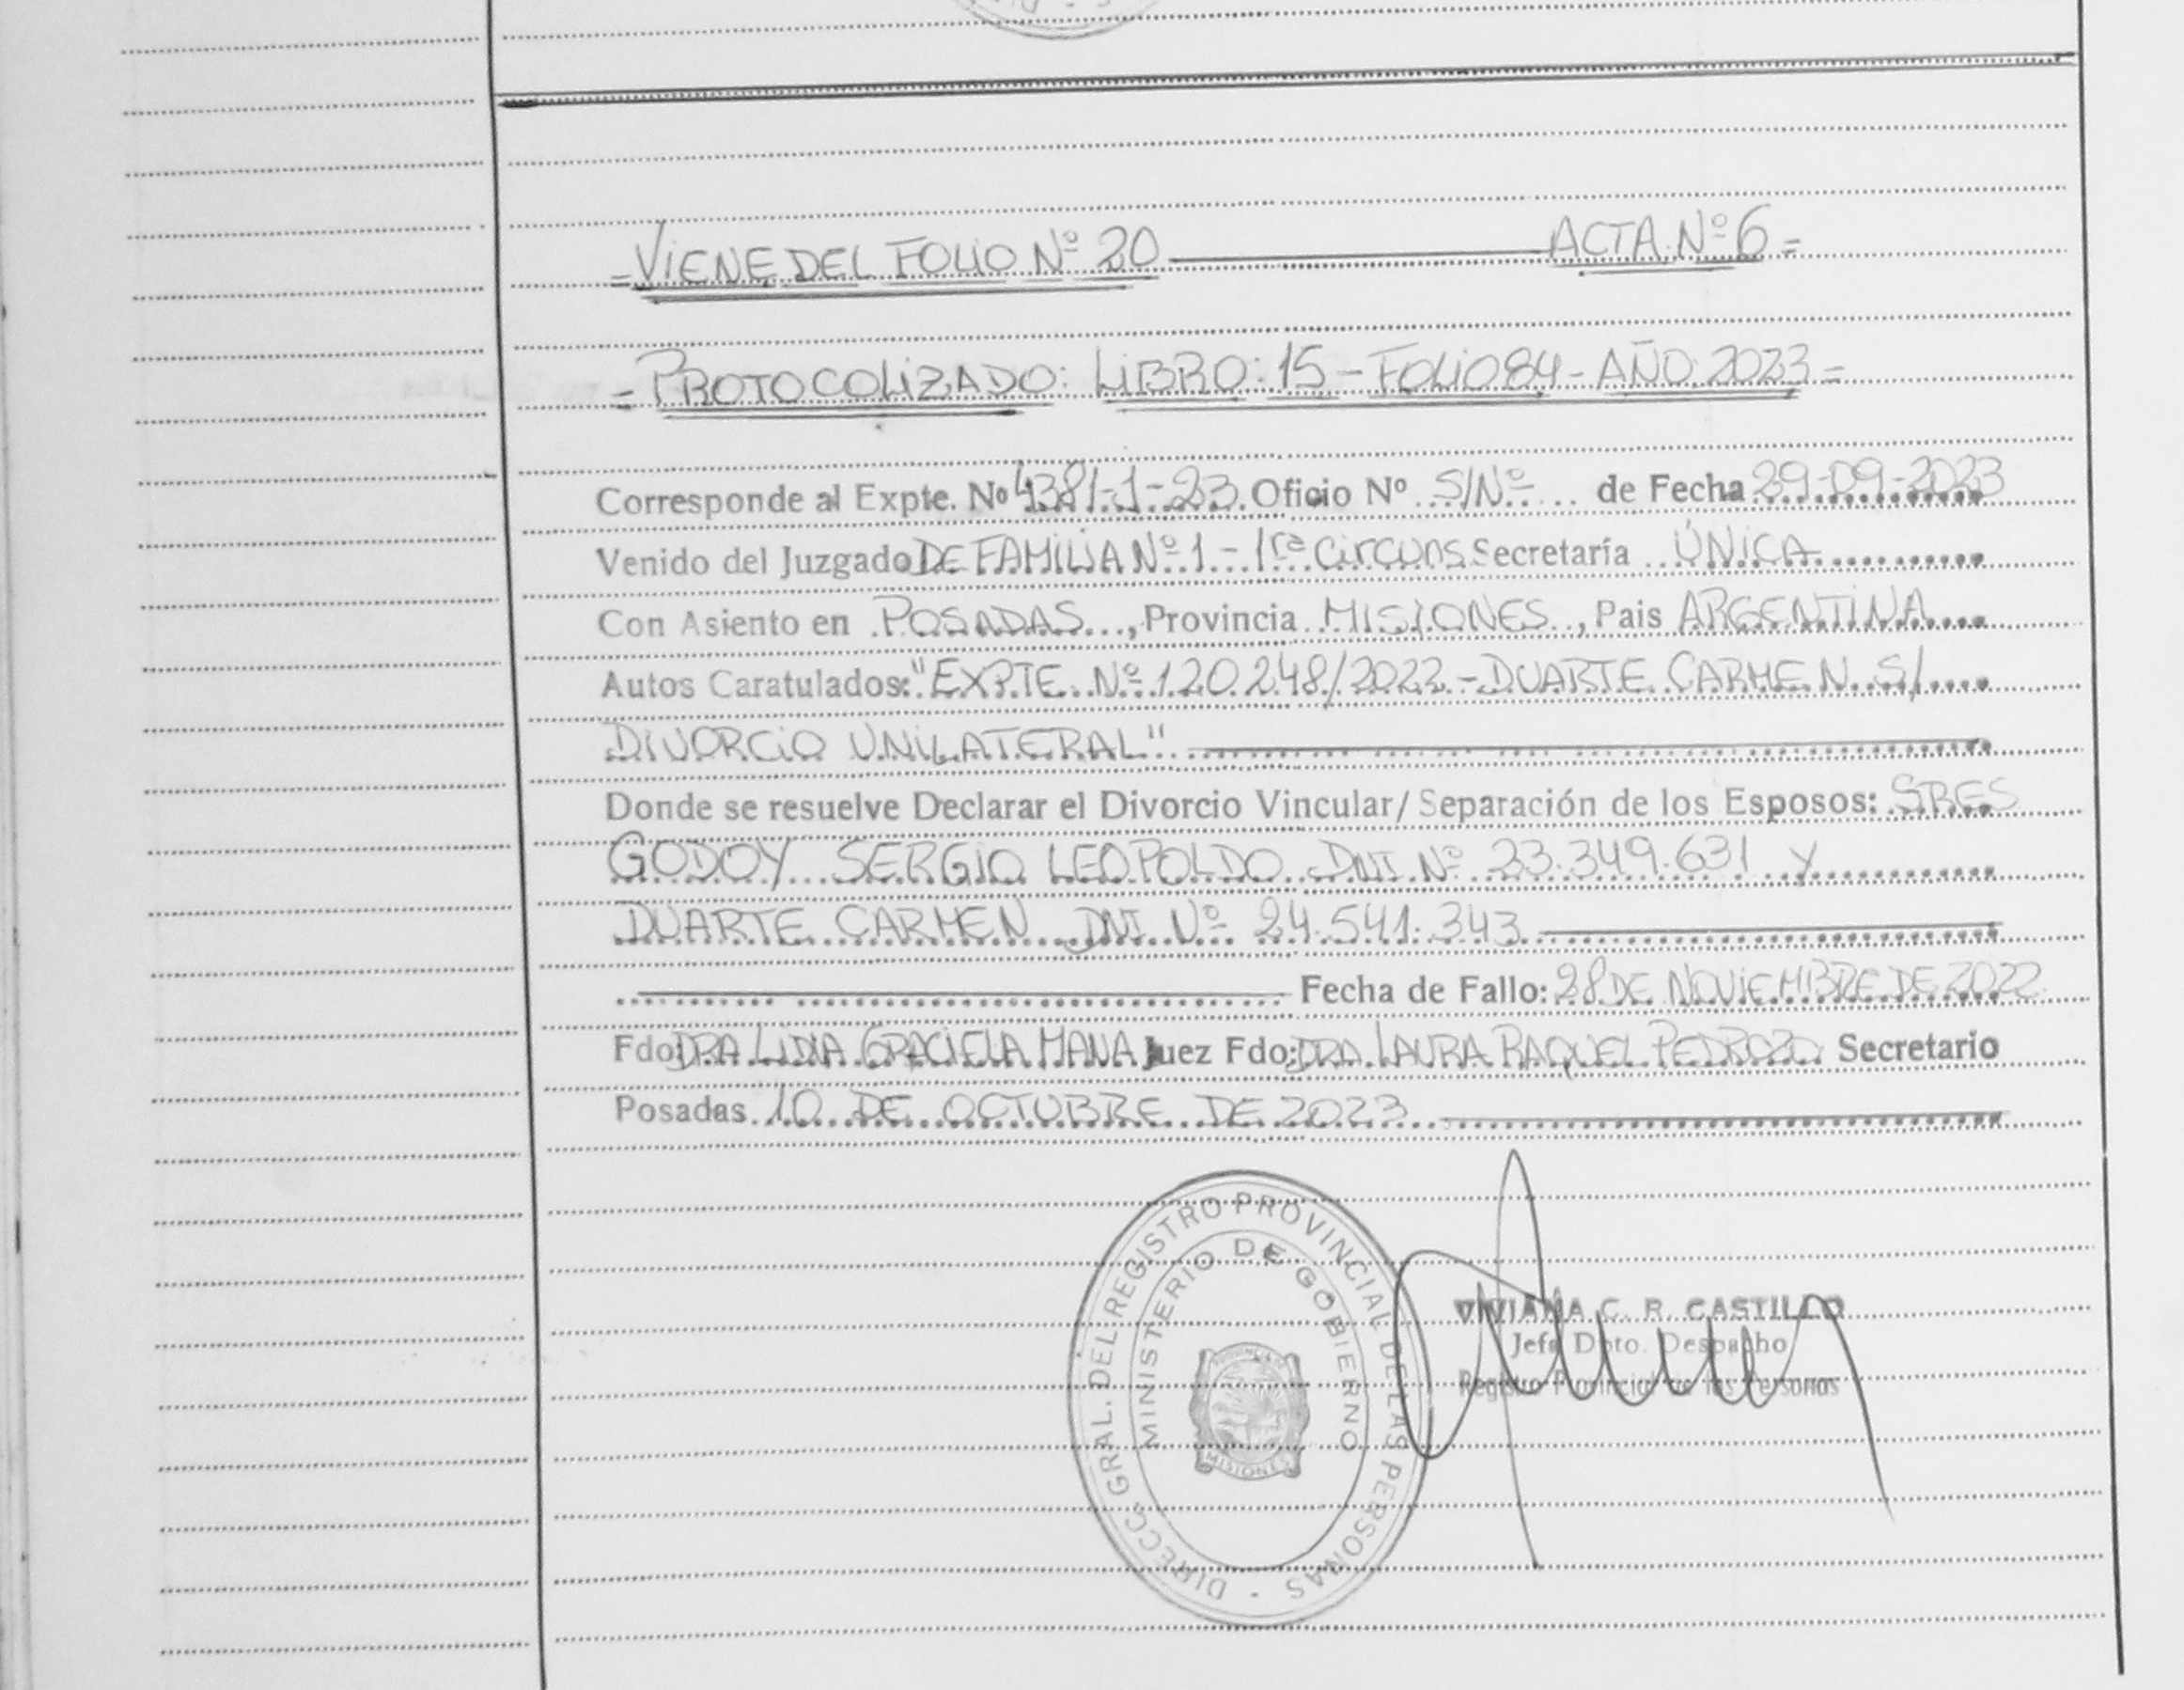 =VIENE DEL FOLIO Nº 20 ACTA Nº 6=
=PROTOCOLIZADO: LIBRO: 15 - FOLIO 84 - AÑO 2023=
Corresponde al Expte. Nº 4381-1-23 Oficio Nº S/Nº de Fecha 29-09-2023
Venido del Juzgado DE FAMILIA Nº 1 - 1ra Circuns. Secretaría ÚNICA
Con Asiento en POSADAS, Provincia MISIONES, Pais ARGENTINA
Autos Caratulados: "EXPTE. Nº 120.248/2022 - DUARTE CARMEN S/
DIVORCIO UNILATERAL"
Donde se resuelve Declarar el Divorcio Vincular/ Separación de los Esposos: SRES
GODOY SERGIO LEOPOLDO DNI Nº 23.349.631 y
DUARTE CARMEN DNI Nº 24.541.343
Fecha de Fallo: 28 DE NOVIEMBRE DE 2022
Fdo: DRA LIDIA GRACIELA MANA Juez Fdo: DRA LAURA RAQUEL PEDROZO Secretario
Posadas 10 DE OCTUBRE DE 2023
DIRECC. GRAL. DEL REGISTRO PROVINCIAL DE LAS PERSONAS -
MINISTERIO DE GOBIERNO
PROVINCIA DE
MISIONES
VIVIANA C. R. CASTILLO
Jefa Dpto. Despacho
Registro Provincial de las Personas